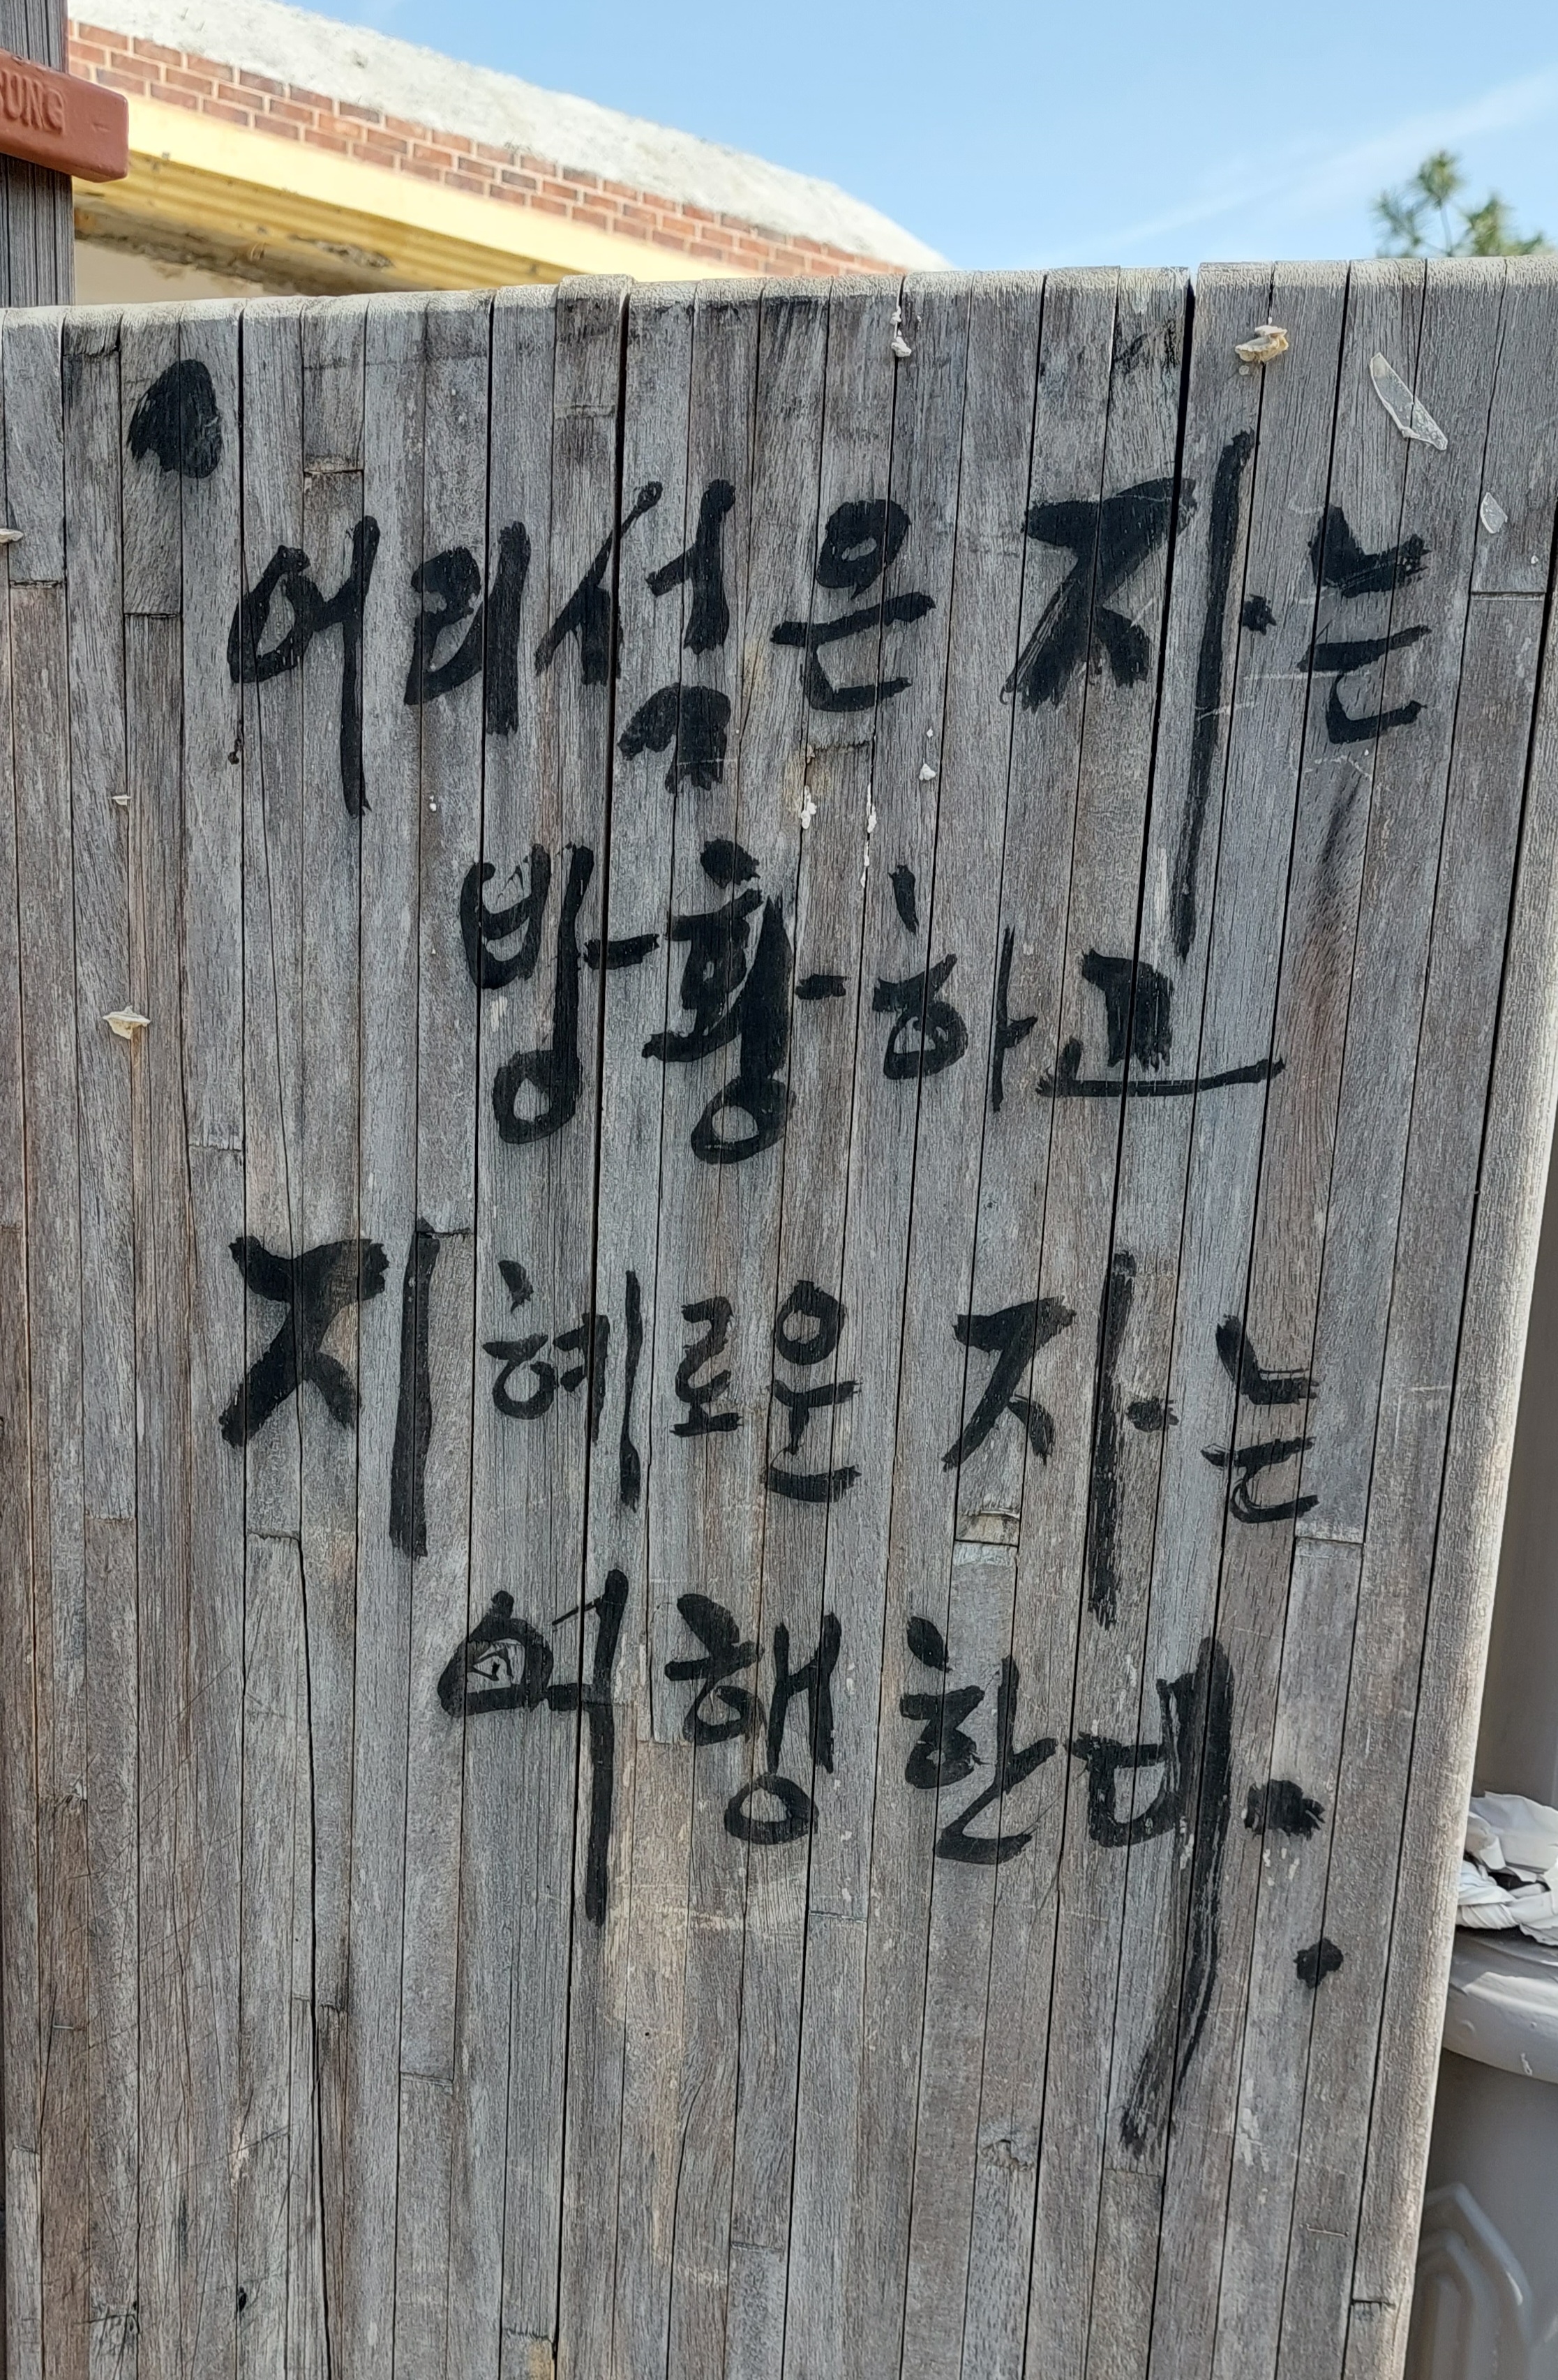 RUNG
어리섞은 자는
방황하고
지혜로운 자는
여행한다.